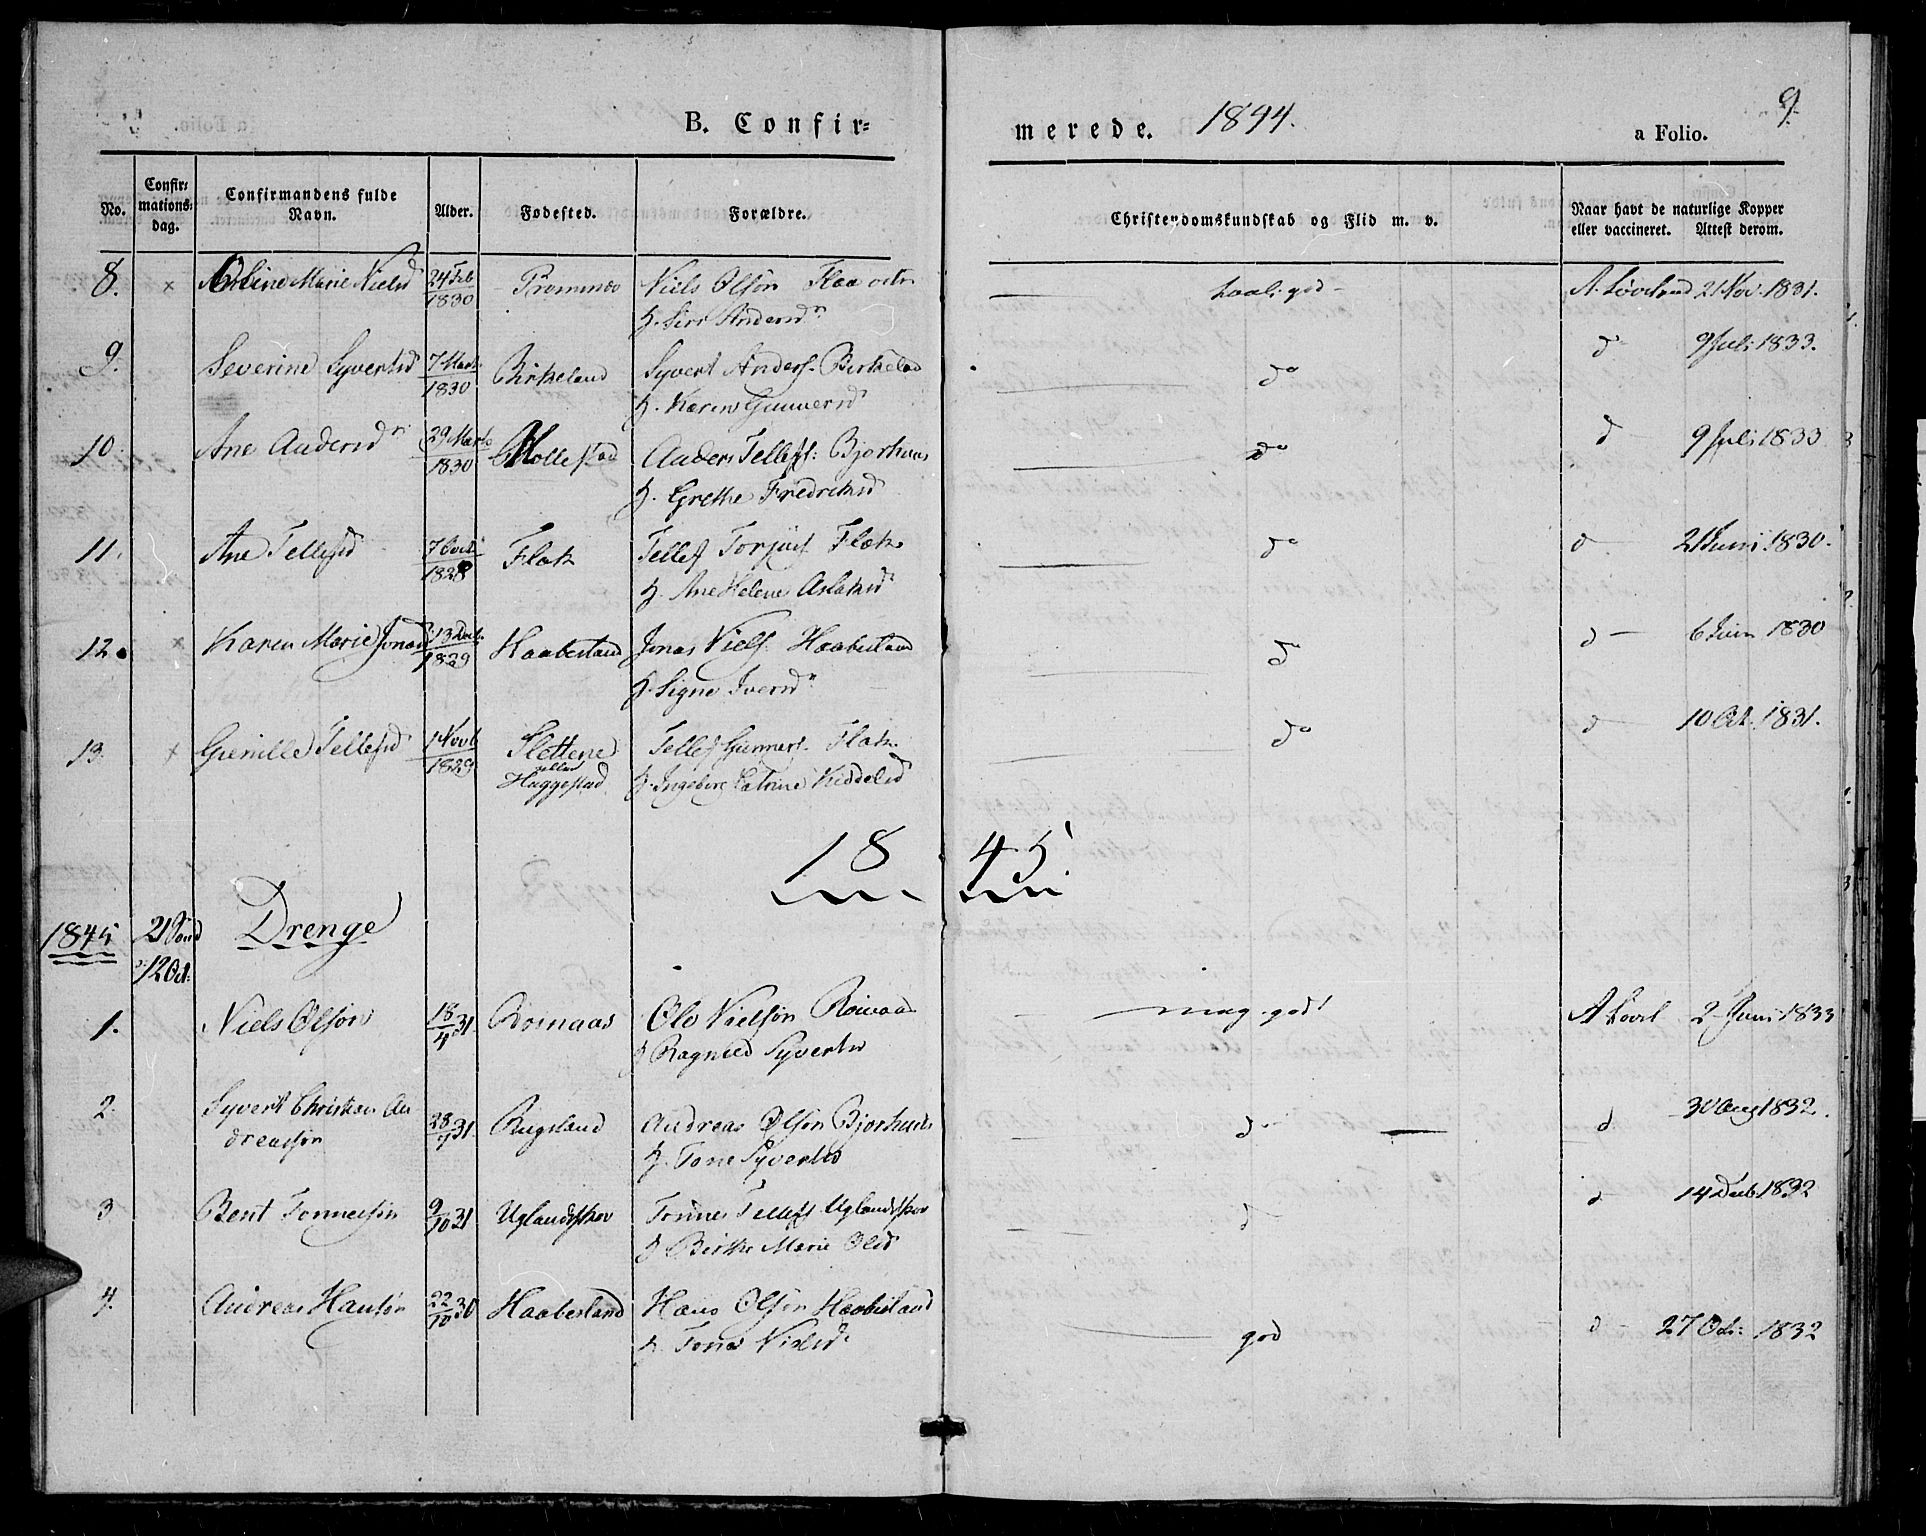 B. Confir=
merede. 1844.
a Folio.
9.
No.
Confir=
mations=
dag.
Confirmandens fulde
Navn.
Alder.
Fødested.
Forældre.
Christendomskundskab og Flid m. v.
Naar havt de naturlige Kopper
eller vaccineret. Attest derom.
8. × Marie Nielsd 24 Feb 1830 Niels Olsøn Flaa
Andersd
god A. Løveland 21 Nov. 1831.
9. Severine Syvertsd 7 Marts 1830 Birkeland Syvert Anders. Birkeland
H. Karen Gunnersd
do d 9 Juli 1833.
10. Ane Andersd 29 Marts 1830 Mollestad Anders Tellefs: Bjorhuus
H. Grethe Fredriksd
do d 9 Juli 1833
11. Ane Tellefsd 7 1828 Flak Tellef Torjus Flak
H. Ane Helene Aslaksd
do d 21 Juni 1830.
12. × Karen Marie Jonasd 13 Dec. 1829 Haabesland Jonas Niels. Haabesland
H. Signe Iversd
d d 6 Juni 1830
13. × Gunille Tellefsd 1 Novb 1829 Slettene Tellef Gunners. Flak
eller
Haggestad H. Ingebor Catrine Kiddelsd
do d 10 Oct. 1831.
18 45
1845 21 Sønd
12 Oct. Drenge
1. Niels Olsøn 18/4 31 Roinaas Ole Nielsøn Roinaas
H Ragnild Syvertsd
meg. god! A Lovel 2 Juni 1833
2. Syvert Christian An
dreassøn 28/4 31 Rugsland Andreas Olsøn Bjorhuus
H. Tone Syvertsd
d d 30 Aug 1832.
3 Bent Tønnessøn 9/10 31 Uglandsskov Tønnes Tellefs Uglandsskov
H Birthe Marie Olsd
d d 14 Decb 1832
4. Andreas Hansøn 22/10 30 Haabesland Hans Olsøn Haabesland
H. Tone Nielsd
god d 27 Oct: 1832